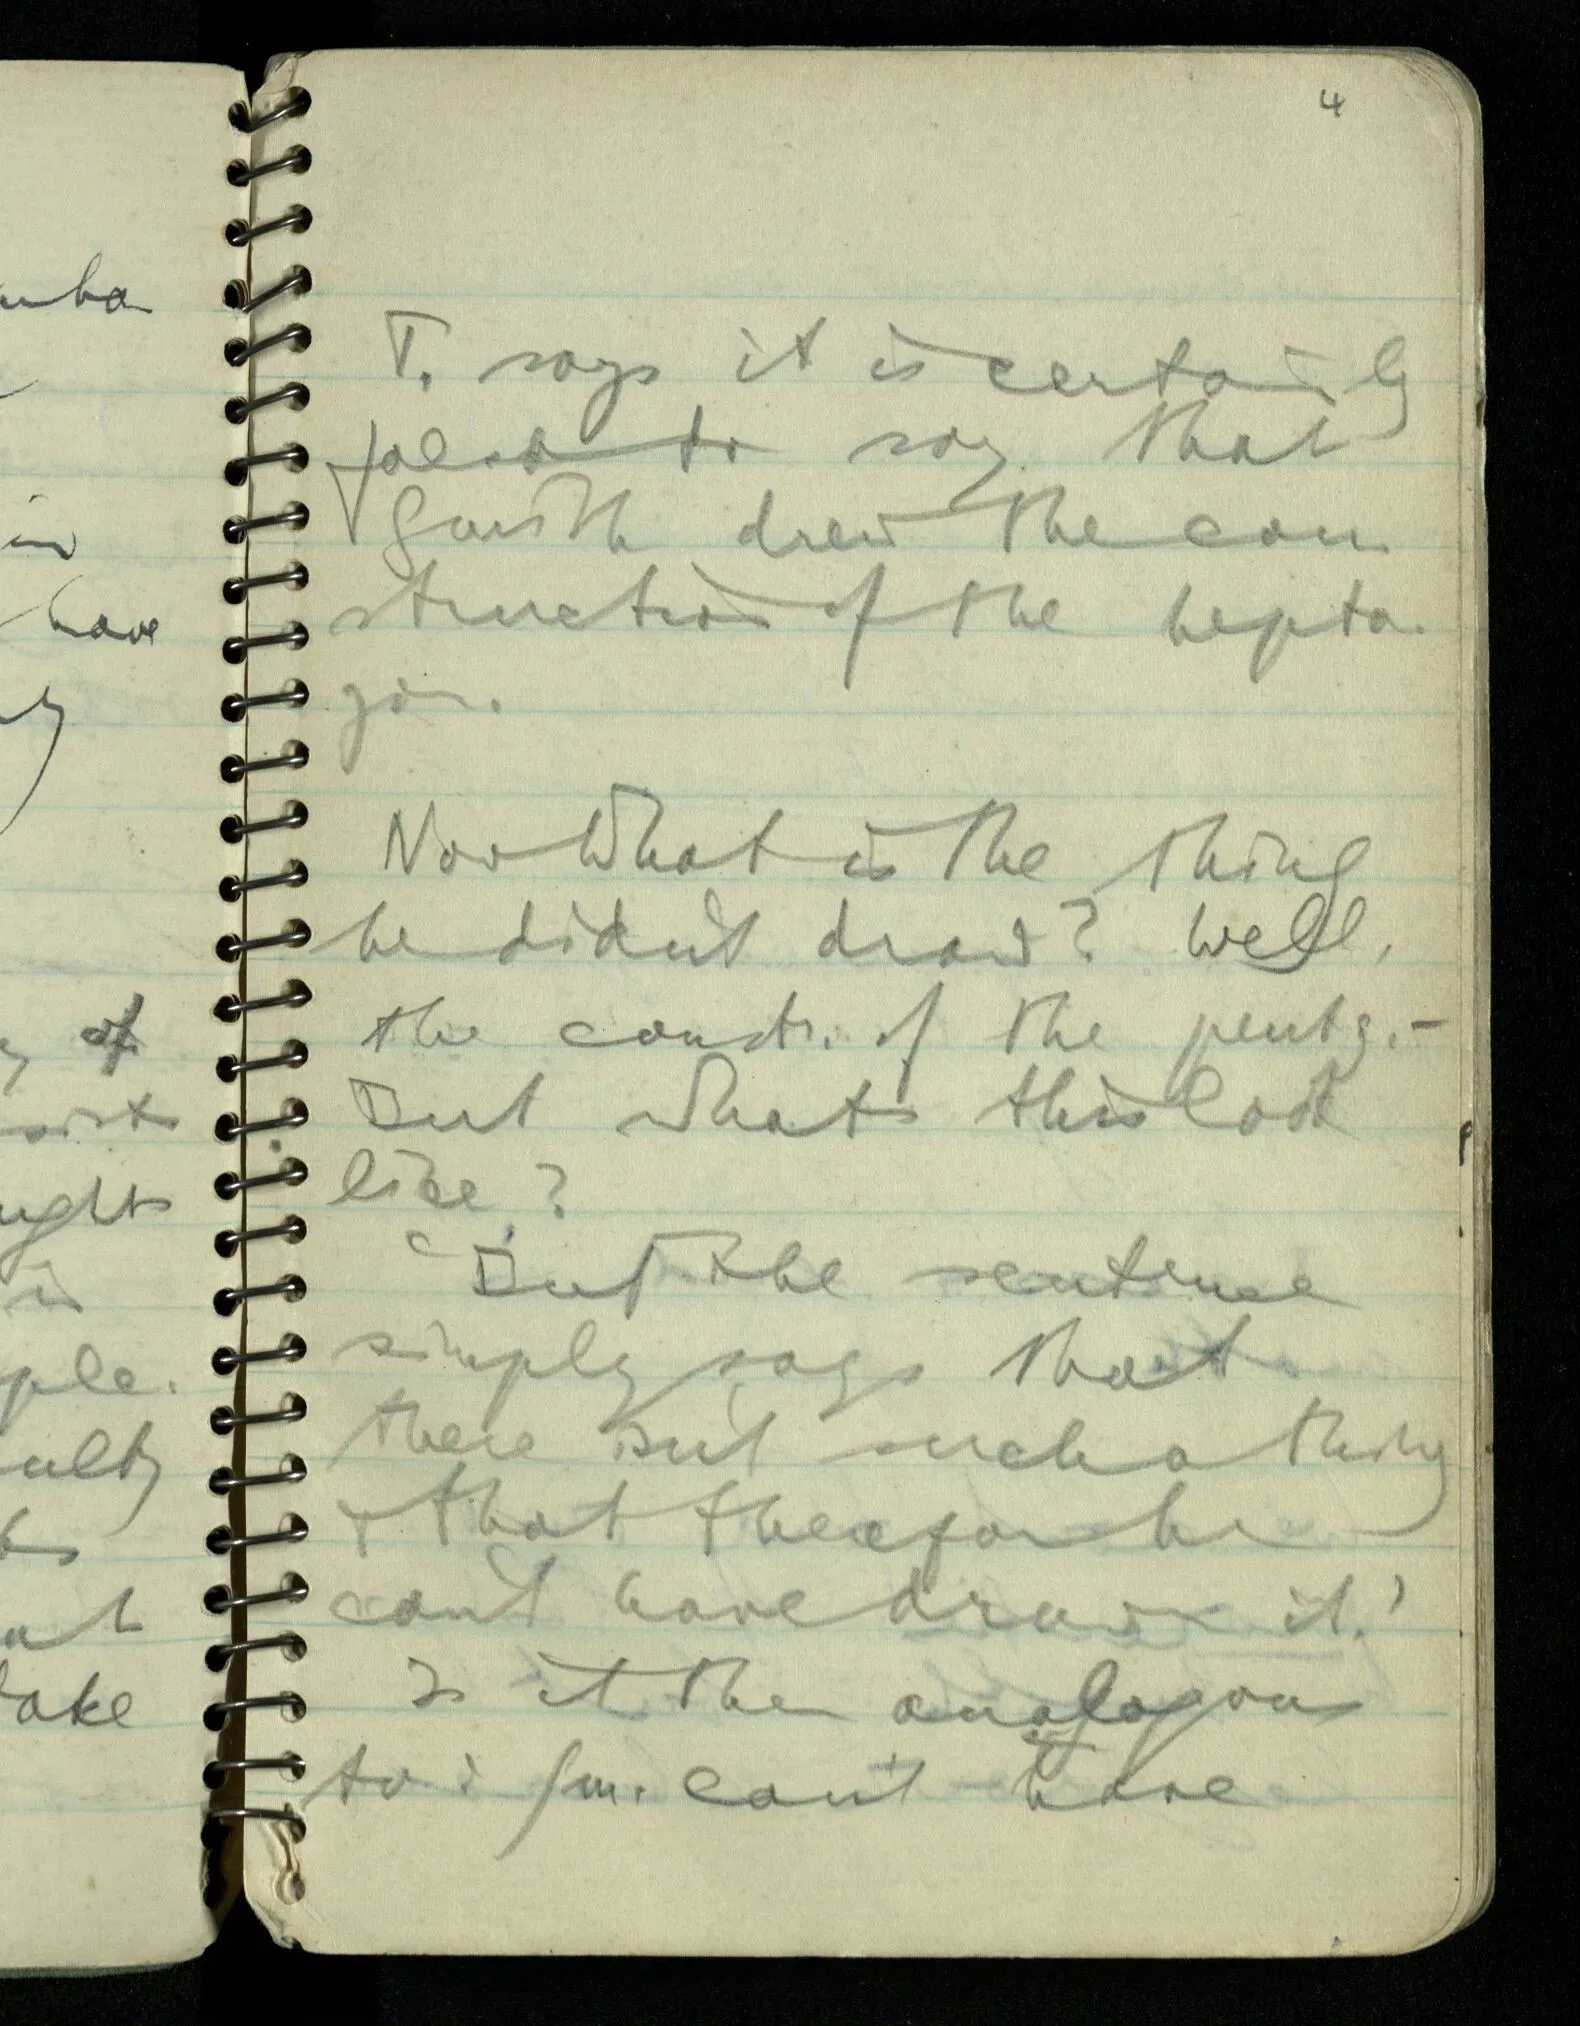 4
T. says it is certainly
false to say that
Smith drew the con
struction of the hepta-
gon.
Now What is the thing
he didn't draw? Well,
the constr. of the pentg. –
But what's this look
like?
'But the sentence
simply says that
there isn't such a thing
& that therefor he
can't have drawn it.'
Is it then analogous
to: Sm. can't have
in
have
of
ights
is
ple.
ulty
at
take